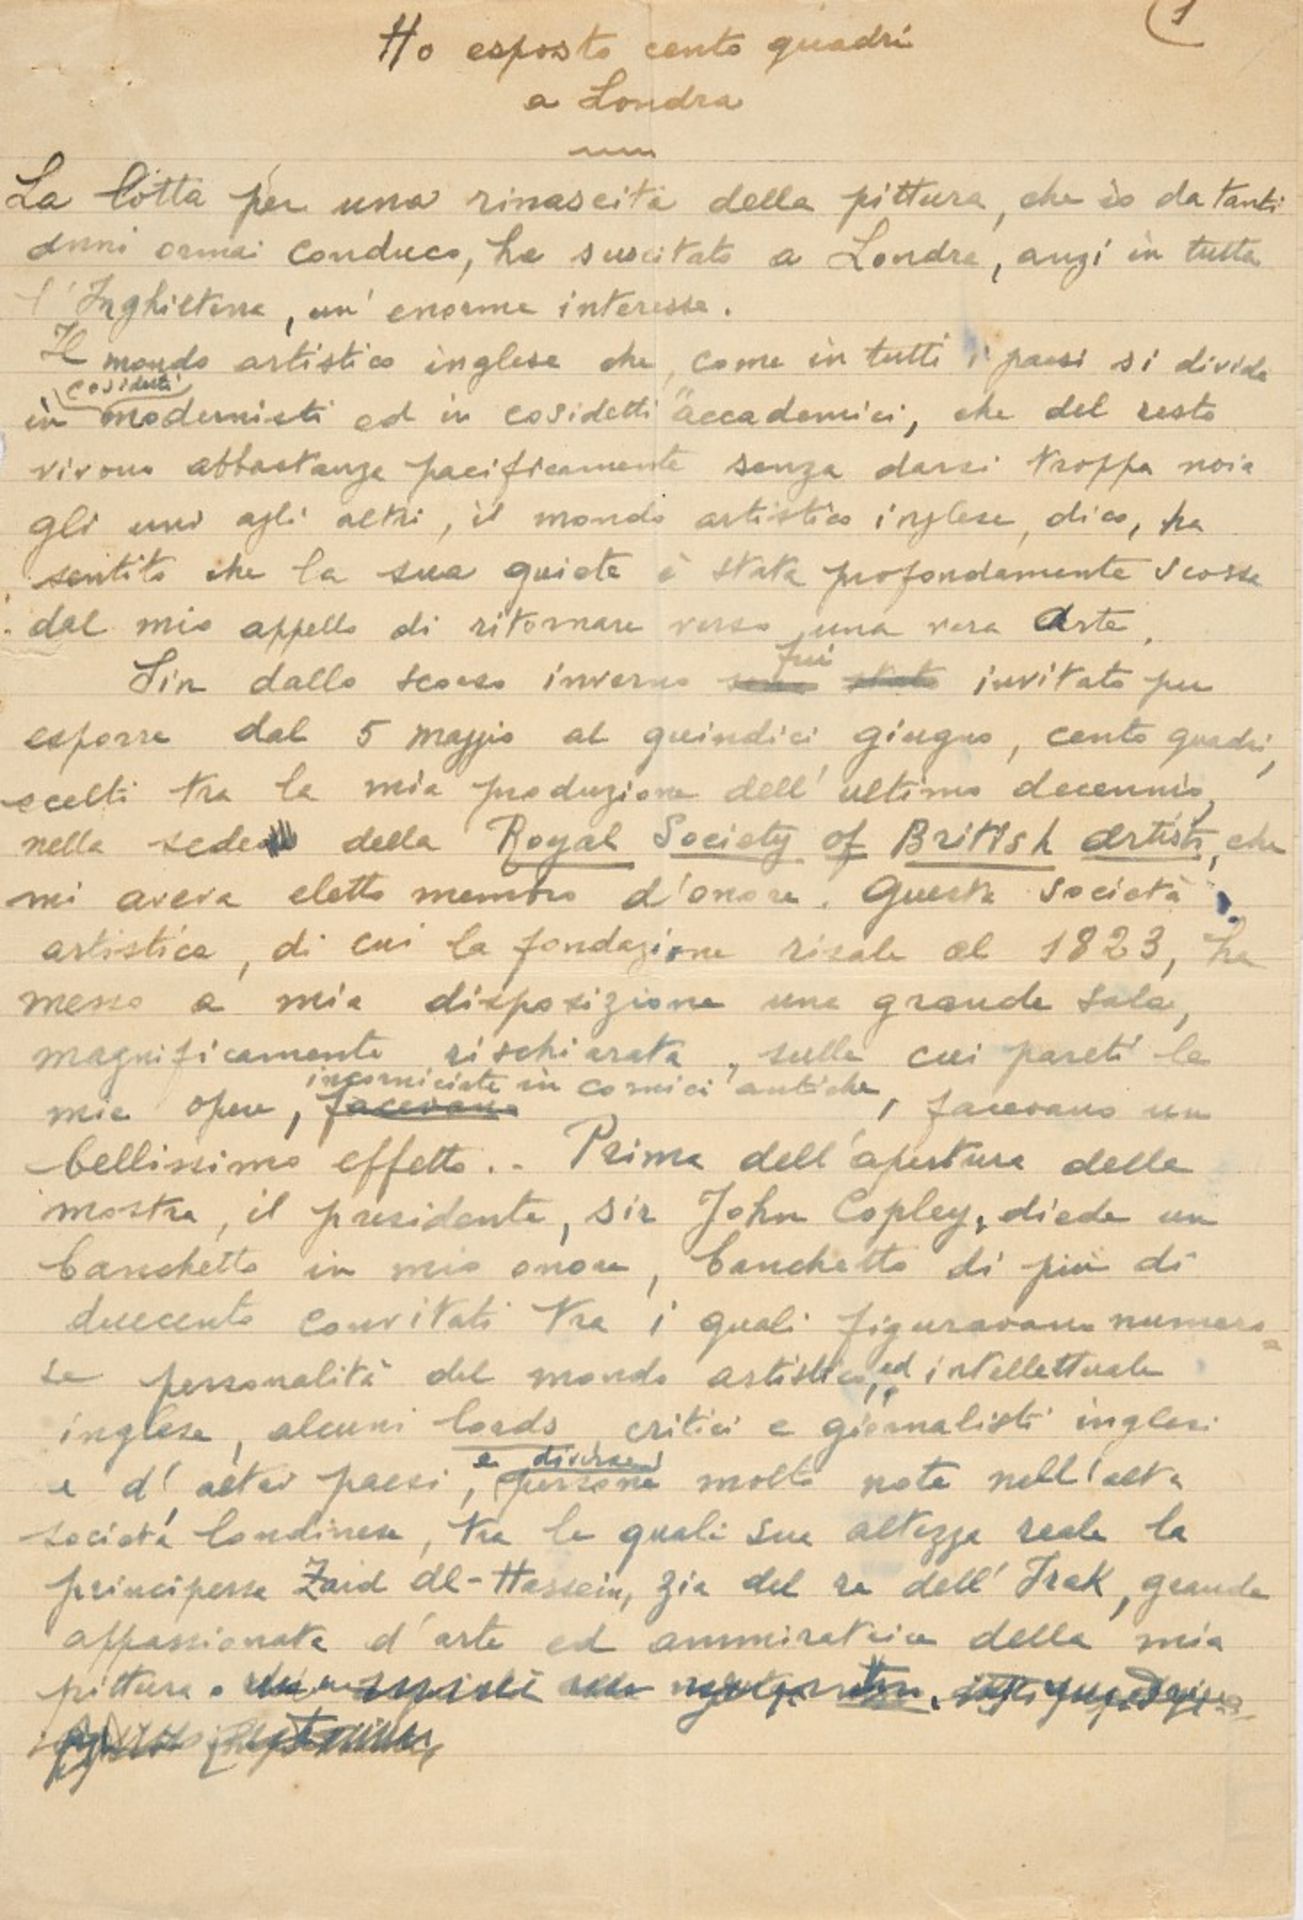 1
Ho esposto cento quadri
a Londra
La lotta per una rinascita della pittura, che io da tanti
anni ormai conduco, ha suscitato a Londra, anzi in tutta
l'Inghilterra, un' enorme interesse.
Il mondo artistico inglese che, come in tutti i paesi si divide
cosidetti
in modernisti ed in cosidetti "accademici, che del resto
vivono abbastanza pacificamente senza darsi troppa noia
gli uni agli altri, il mondo artistico inglese, dico, ha
sentito che la sua quiete è stata profondamente scossa
dal mio appello di ritornare verso una vera Arte.
fui
Sin dallo scorso inverno sono stato invitato per
esporre dal 5 maggio al quindici giugno, cento quadri,
scelti tra la mia produzione dell'ultimo decennio,
nella sede della Royal Society of British Artists, che
mi aveva eletto membro d'onore. Questa società
artistica, di cui la fondazione risale al 1823, ha
messo a mia disposizione una grande sala,
magnificamente rischiarata, sulle cui pareti le
incorniciate in cornici antiche,
mie opere, facevano facevano un
bellissimo effetto.. Prima dell'apertura della
mostra, il presidente, sir John Copley, diede un
banchetto in mio onore, banchetto di più di
duecento convitati tra i quali figuravano numero-
se personalità del mondo artistico, ed intellettuale
inglese, alcuni lords, critici e giornalisti inglesi
e diverse
e d'altri paesi, persone molto note nell'alta
società londinese, tra le quali sua altezza reale la
principessa Zaid Al-Hassein, zia del re dell'Irak, grande
appassionata d'arte ed ammiratrice della mia
pittura.